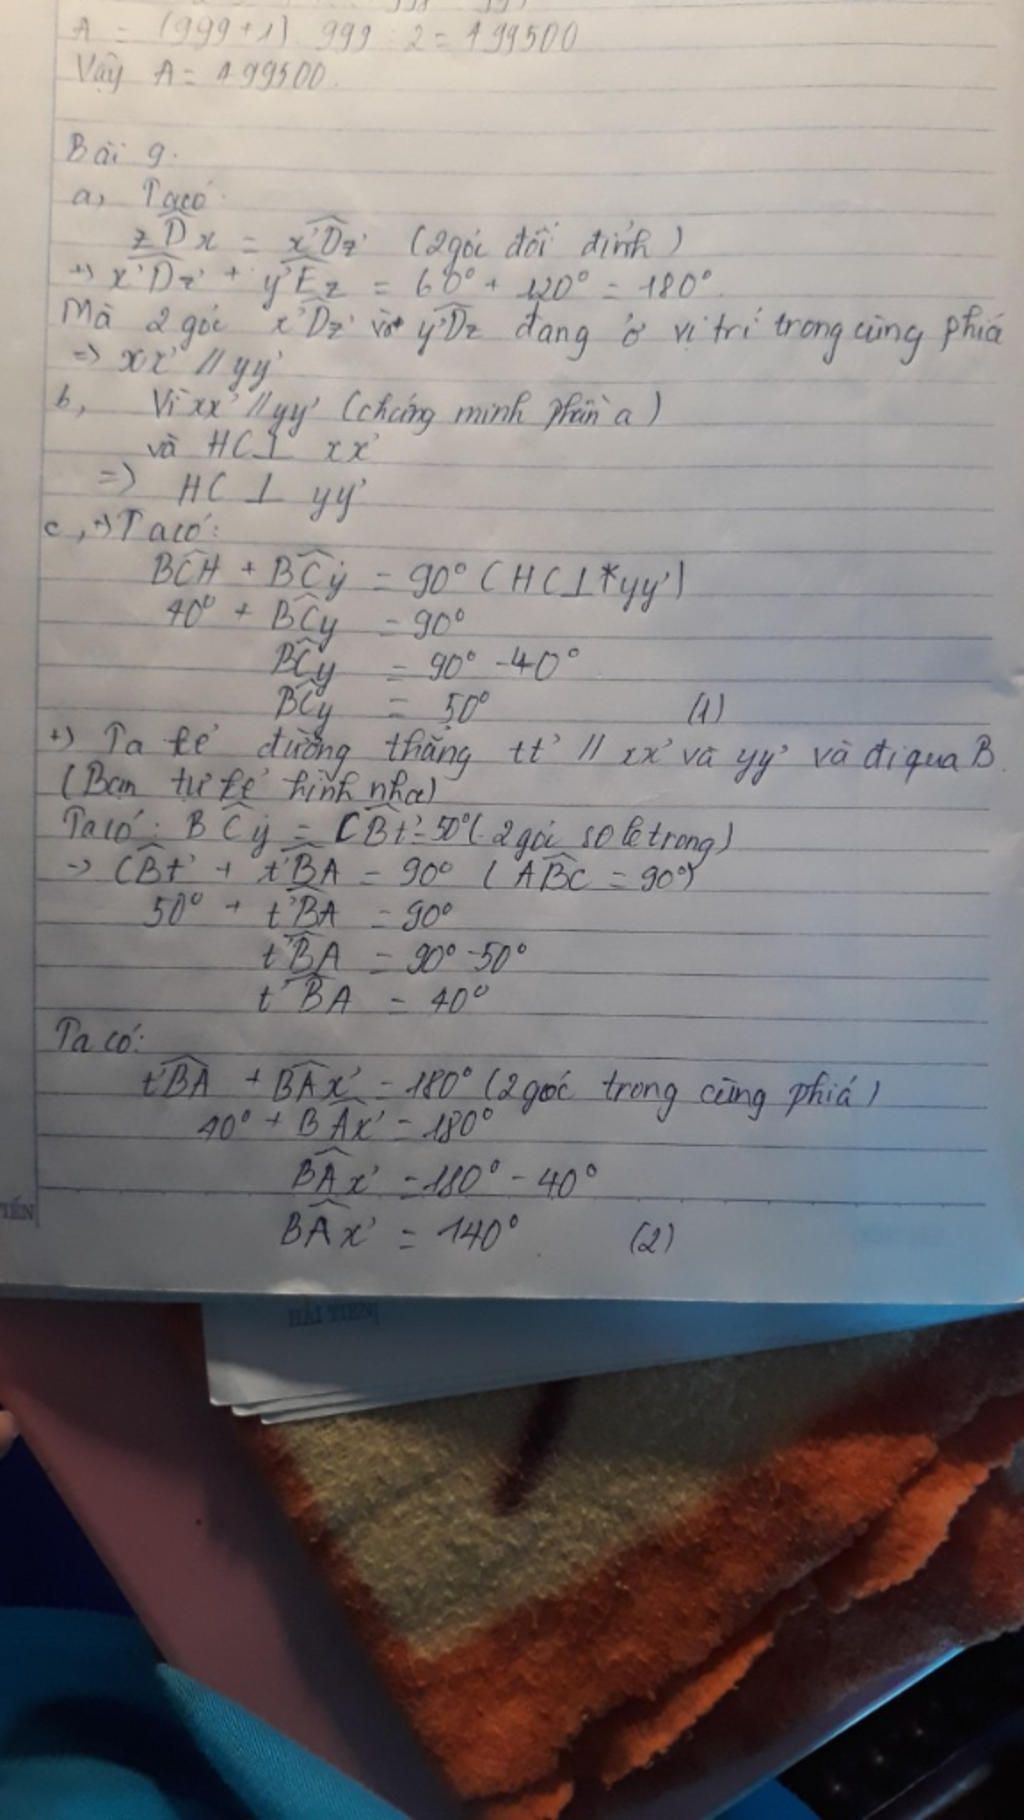 A = (999+1). 999 : 2 = 499500
Vậy A = 499500.
Bài 9.
a, Ta có:
zDx = x'Dz' (2 góc đối đỉnh)
=> x'Dz' + y'Ez = 60° + 120° = 180°.
Mà 2 góc x'Dz' và y'Dz đang ở vị trí trong cùng phía
=> xx' // yy'
b, Vì xx' // yy' (chứng minh phần a)
và HC ⊥ xx'
=> HC ⊥ yy'
c, +) Ta có:
BCH + BCy = 90° (HC ⊥ yy')
40° + BCy = 90°
BCy = 90° - 40°
BCy = 50° (1)
+) Ta kẻ đường thẳng tt' // xx' và yy' và đi qua B.
(Bạn tự kẻ hình nha)
Ta có: BCy = CBt' = 50° (2 góc so le trong)
-> CBt' + t'BA = 90° (ABC = 90°)
50° + t'BA = 90°
t'BA = 90° - 50°
t'BA = 40°
Ta có:
t'BA + BAx' = 180° (2 góc trong cùng phía)
40° + BAx' = 180°
BAx' = 180° - 40°
BAx' = 140° (2)
TIẾN
HẢI TIẾN